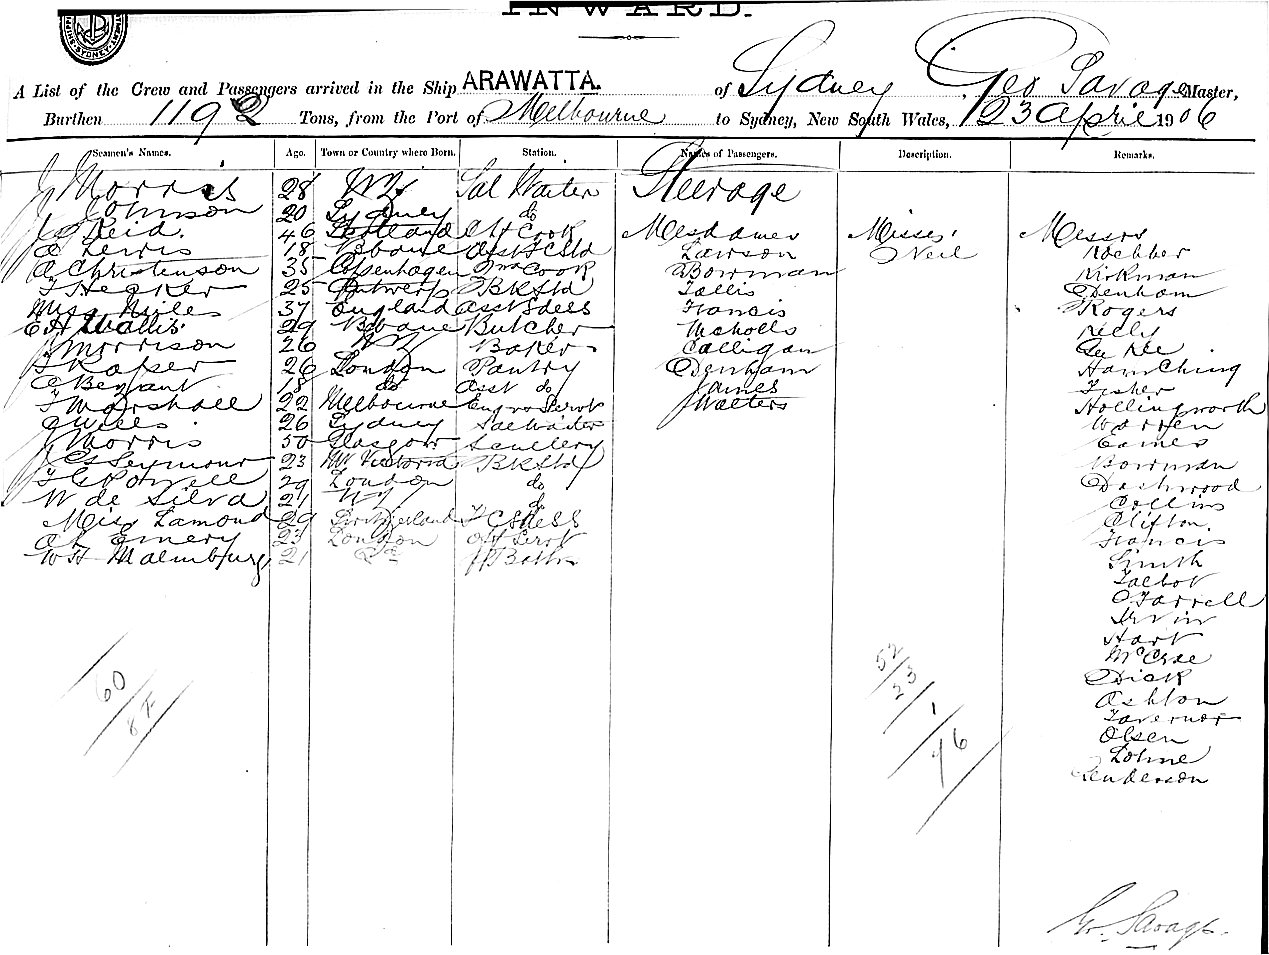 INWARD.
A List of the Crew and Passengers arrived in the Ship ARAWATTA. of Sydney, Geo Savage Master,
Burthen 1192 Tons, from the Port of Melbourne to Sydney, New South Wales, 23 April 1906
Seamen's Names. Age. Town or Country where Born. Station. Names of Passengers. Description. Remarks.
J Morris 28 NZ Sal Waiter Steerage
J Johnson 20 Sydney do
Reid 46 Cook Mesdames Misses Messrs
Lewis 18 Lawson Neil Webber
A Christenson 35 Copenhagen Cook Bowman Kirkman
T Hecker 25 Antwerp BkStd Tallis Denham
Miss Niles 37 England Asst Sdess Francis Rogers
E H Wallis 29 Bbane Butcher Nicholls
J Morrison 26 NZ Baker Calligan
26 London Pantry Denham Ham Ching
18 do Asst do James Fisher
T Marshall 22 Melbourne Walters Hollingworth
26 Sydney Sal Waiter Warren
J Morris 50 Glasgow Scullery Eames
J C Seymour 23 Mt Victoria BkStd Bowman
F G Powell 29 London do Dashwood
W de Silva 21 NZ do Collins
Miss Lamond 29 Switzerland Clifton
Emery 23 London Francis
W H Malmburg 21 Do Smith
Talbot
O'Farrell
Irvin
Hart
McCrae
Dick
Ashton
Tavernor
Olsen
Lohne
Henderson
60
52
23
1
76
Geo. Savage.